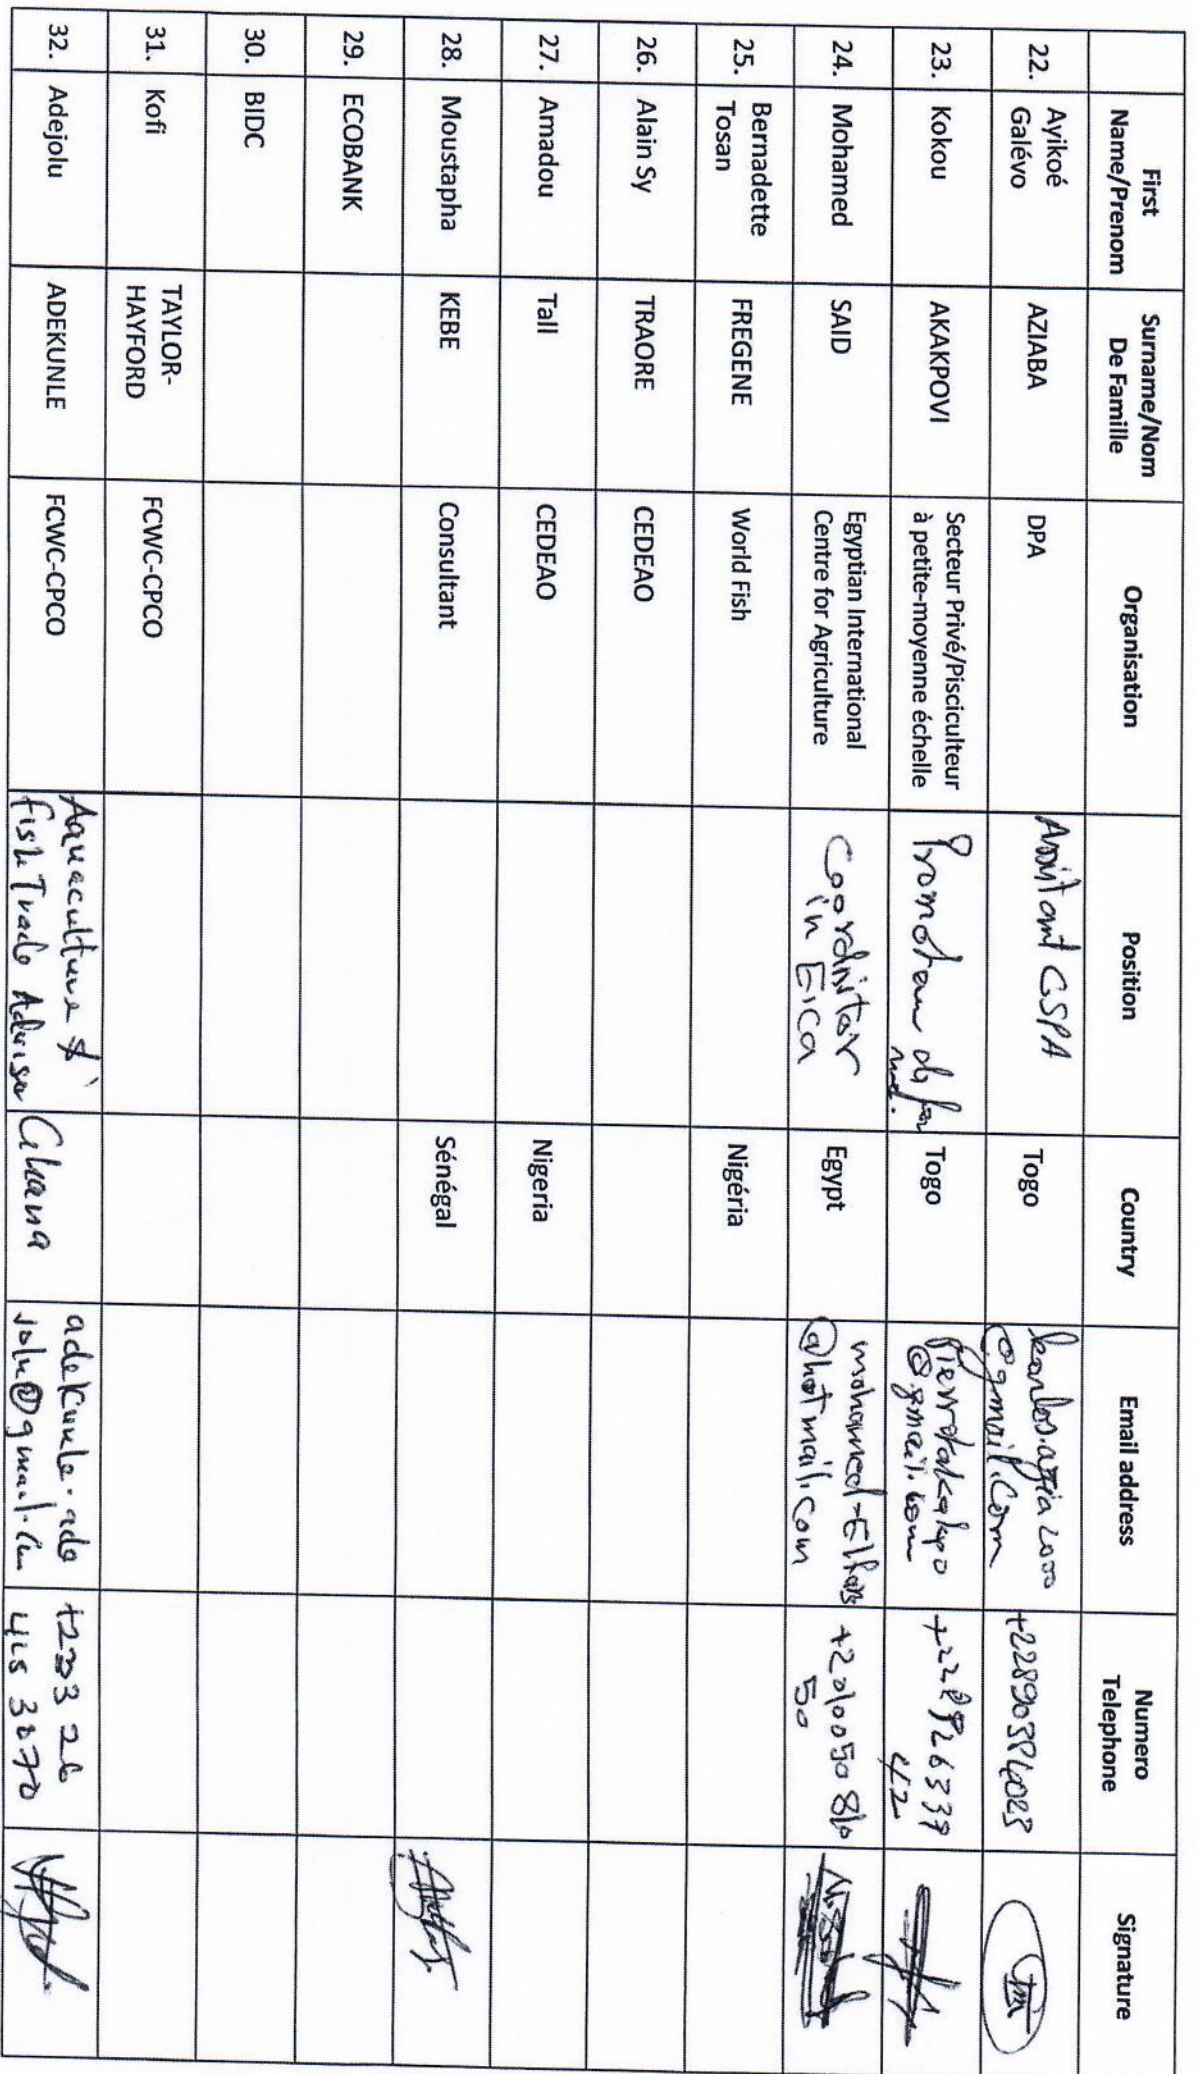 First Name/Prenom Surname/Nom De Famille Organisation Position Country Email address Numero Telephone Signature
22. Ayikoé Galévo AZIABA DPA Assistant CSPA Togo @gmail.com
23. Kokou AKAKPOVI Secteur Privé/Pisciculteur à petite-moyenne échelle Promoteur Togo pierrotakakpo @gmail.com
24. Mohamed SAID Egyptian International Centre for Agriculture Coordinitor in EICA Egypt @hotmail.com
25. Bernadette Tosan FREGENE World Fish Nigéria
26. Alain Sy TRAORE CEDEAO
27. Amadou Tall CEDEAO Nigeria
28. Moustapha KEBE Consultant Sénégal
29. ECOBANK
30. BIDC
31. Kofi TAYLOR-HAYFORD FCWC-CPCO
32. Adejolu ADEKUNLE FCWC-CPCO Aquaculture & Fish Trade Adviser Ghana adekunle.ade +233 26